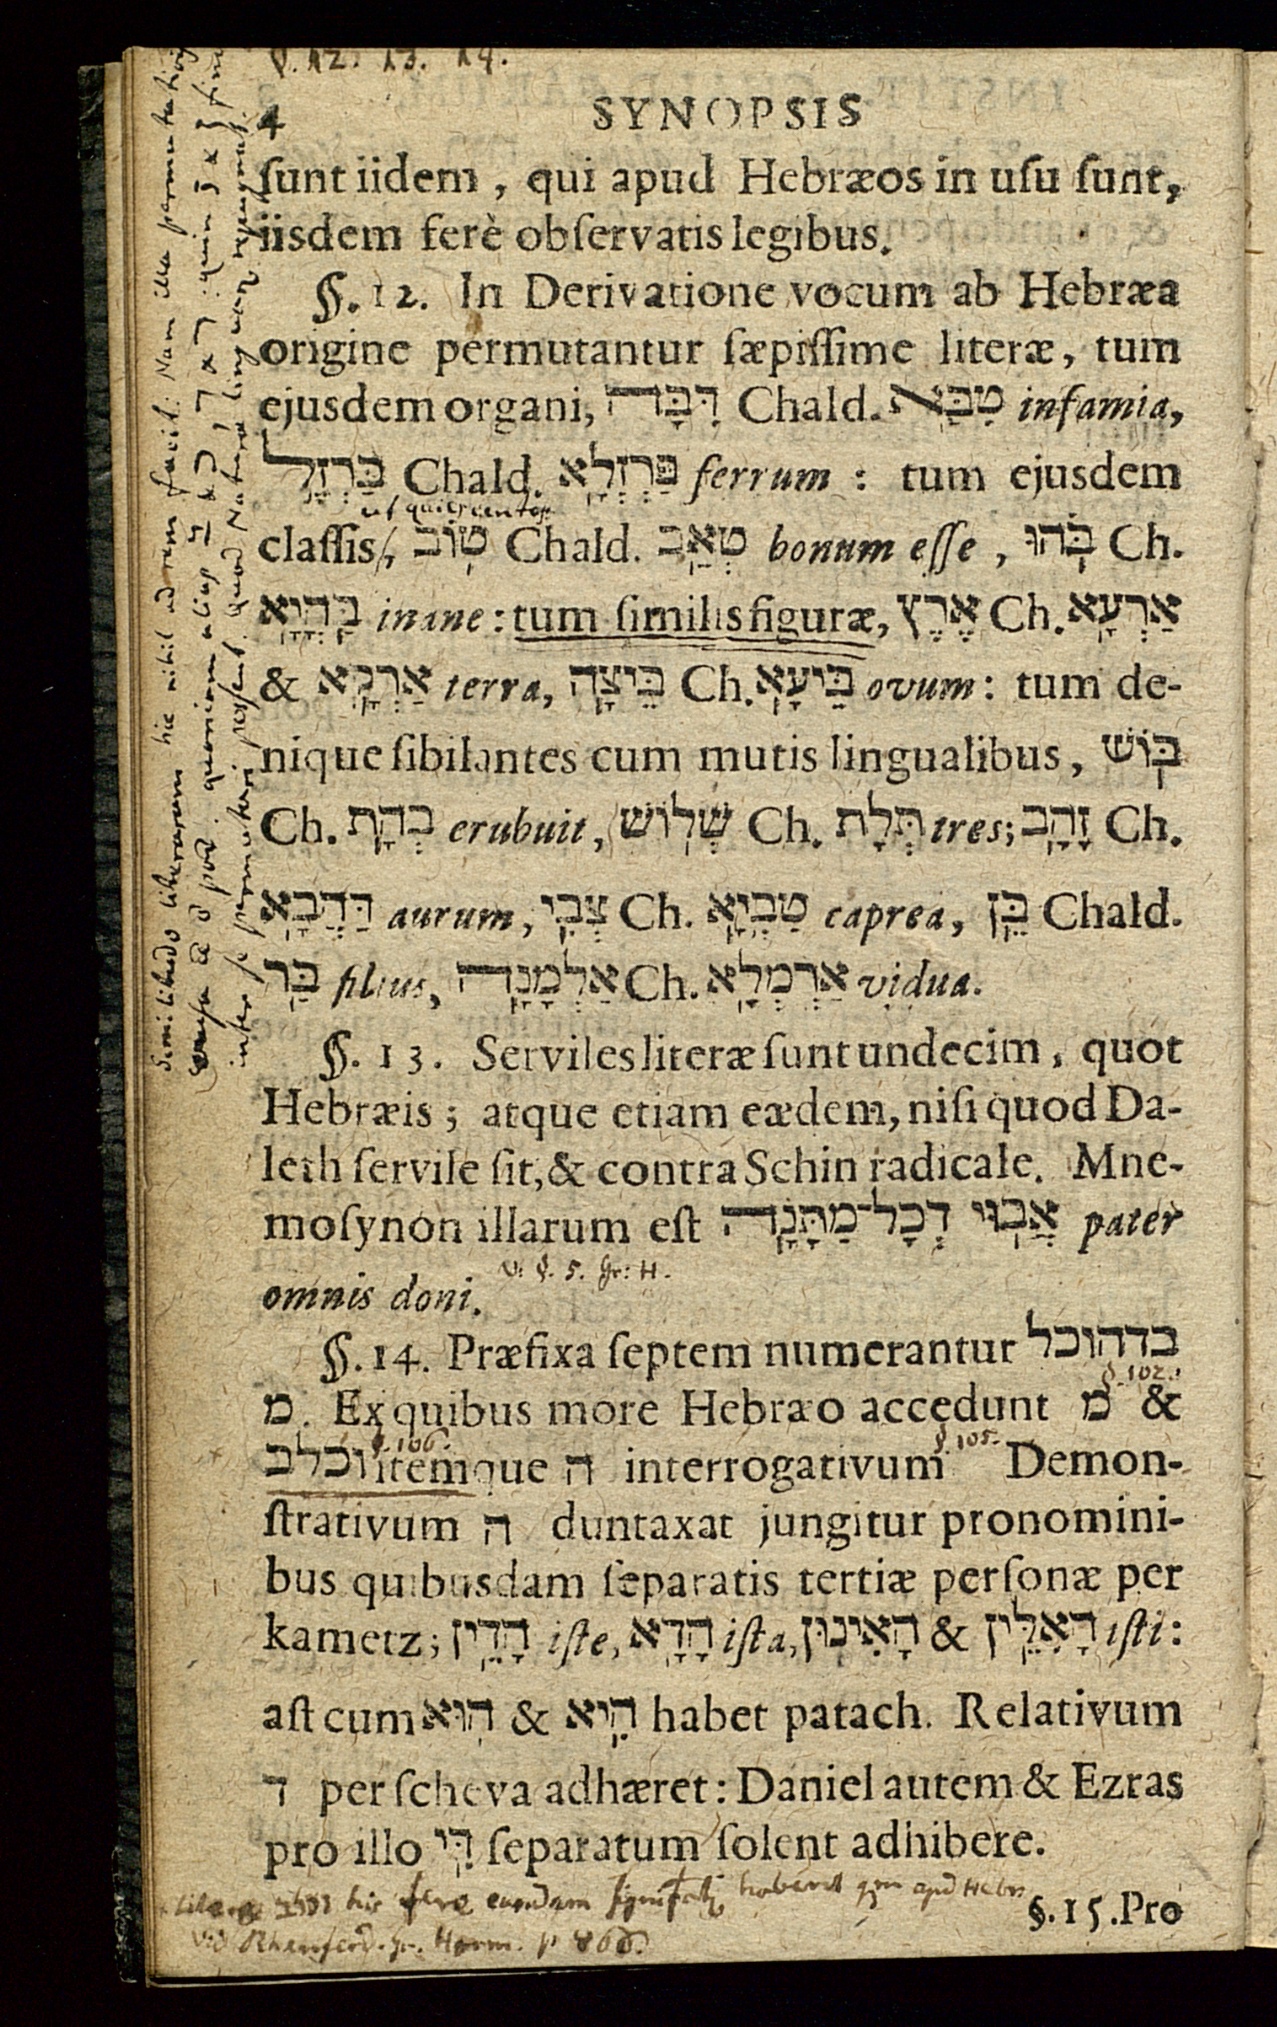 §. 12. 13. 14.
4 SYNOPSIS
ſunt iidem, qui apud Hebræos in uſu ſunt,
iisdem ferè obſervatis legibus.
§. 12. In Derivatione vocum ab Hebræa
origine permutantur ſæpiſſime literæ, tum
ejusdem organi, דִּבָּה Chald. טִבָּא infamia,
בַּרְזֶל Chald. פַּרְזְלָא ferrum : tum ejusdem
ut quiescentes
claſſis, טוֹב Chald. טְאֵב bonum eſſe, בֹּהוּ Ch.
בָּהֲיָא inane: tum ſimilis figuræ, אֶרֶץ Ch. אַרְעָא
& אַרְקָא terra, בֵּיצָה Ch. בֵּיעָא ovum: tum de-
nique ſibilantes cum mutis lingualibus, בּוֹשׁ
Ch. בְּהַת erubuit, שְׁלוֹשׁ Ch. תְּלָת tres; זָהָב Ch.
דַּהֲבָא aurum, צְבִי Ch. טַבְיָא caprea, בֵּן Chald.
בַּר filius, אַלְמָנָה Ch. אַרְמְלָא vidua.
§. 13. Serviles literæ ſunt undecim, quot
Hebræis; atque etiam eædem, niſi quod Da-
leth ſervile ſit, & contra Schin radicale. Mne-
moſynon illarum eſt אֲבוּי דְכָל־מַתָּנָה pater
v. §. 5. Gr: H.
omnis doni.
§. 14. Præfixa ſeptem numerantur בדהוכל
§. 102.
מ. Ex quibus more Hebræo accedunt מ &
§. 106. §. 105.
וכלב itemque ה interrogativum Demon-
ſtrativum ה duntaxat jungitur pronomini-
bus quibusdam ſeparatis tertiæ perſonæ per
kametz; הָדֵין iſte, הָדָא iſta, הָאִינוּן & הָאִלֵּין iſti:
aſt cum הוּא & הִיא habet patach. Relativum
ד per ſcheva adhæret: Daniel autem & Ezras
pro illo דִּי ſeparatum ſolent adhibere.
§. 15. Pro